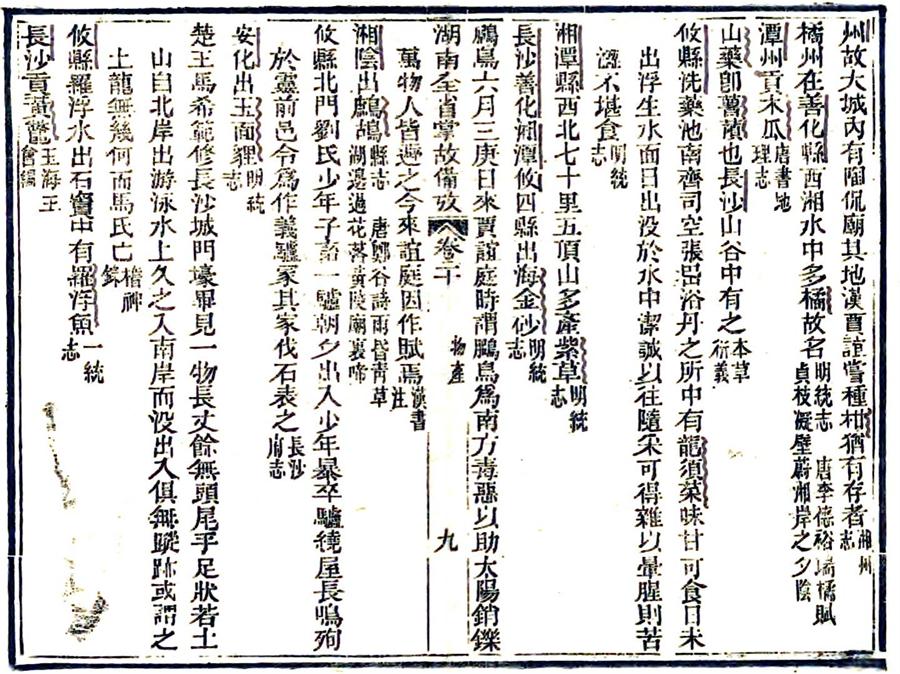 州故大城內有陶侃廟其地漢賈誼嘗種柑猶有存者湘州志
橘州在善化縣西湘水中多橘故名明統志 唐李德裕瑞橘賦貞枝凝壁蔚湘岸之夕陰
潭州貢木瓜唐書地理志
山藥卽薯蕷也長沙山谷中有之本草衍義
攸縣洗藥池南齊司空張岊浴丹之所中有龍須菜味甘可食日未
出浮生水面日出没於水中潔誠以往隨采可得雜以暈腥則苦
澀不堪食明統志
湘潭縣西北七十里五頂山多產紫草明統志
長沙善化湘潭攸四縣出海金砂明統志
鵩鳥六月三庚日來賈誼庭時謂鵩鳥爲南方毒惡以助太陽銷鑠
湖南全省掌故備攷 卷二十 物產 九
萬物人皆趣之今來誼庭因作賦焉漢書注
湘陰出鷓鴣縣志 唐鄭谷詩雨昏靑草湖邊過花落黃陵廟裏啼
攸縣北門劉氏少年子畜一驢朝夕出入少年暴卒驢繞屋長鳴殉
於靈前邑令爲作義驢冢其家伐石表之長沙府志
安化出玉面貍明統志
楚王馬希範修長沙城門壕畢見一物長丈餘無頭尾手足狀若土
山自北岸出游泳水上久之入南岸而没出入俱無蹤跡或謂之
土龍無幾何而馬氏亡稽神錄
攸縣羅浮水出石竇中有羅浮魚一統志
長沙貢黃鶯玉海王會編